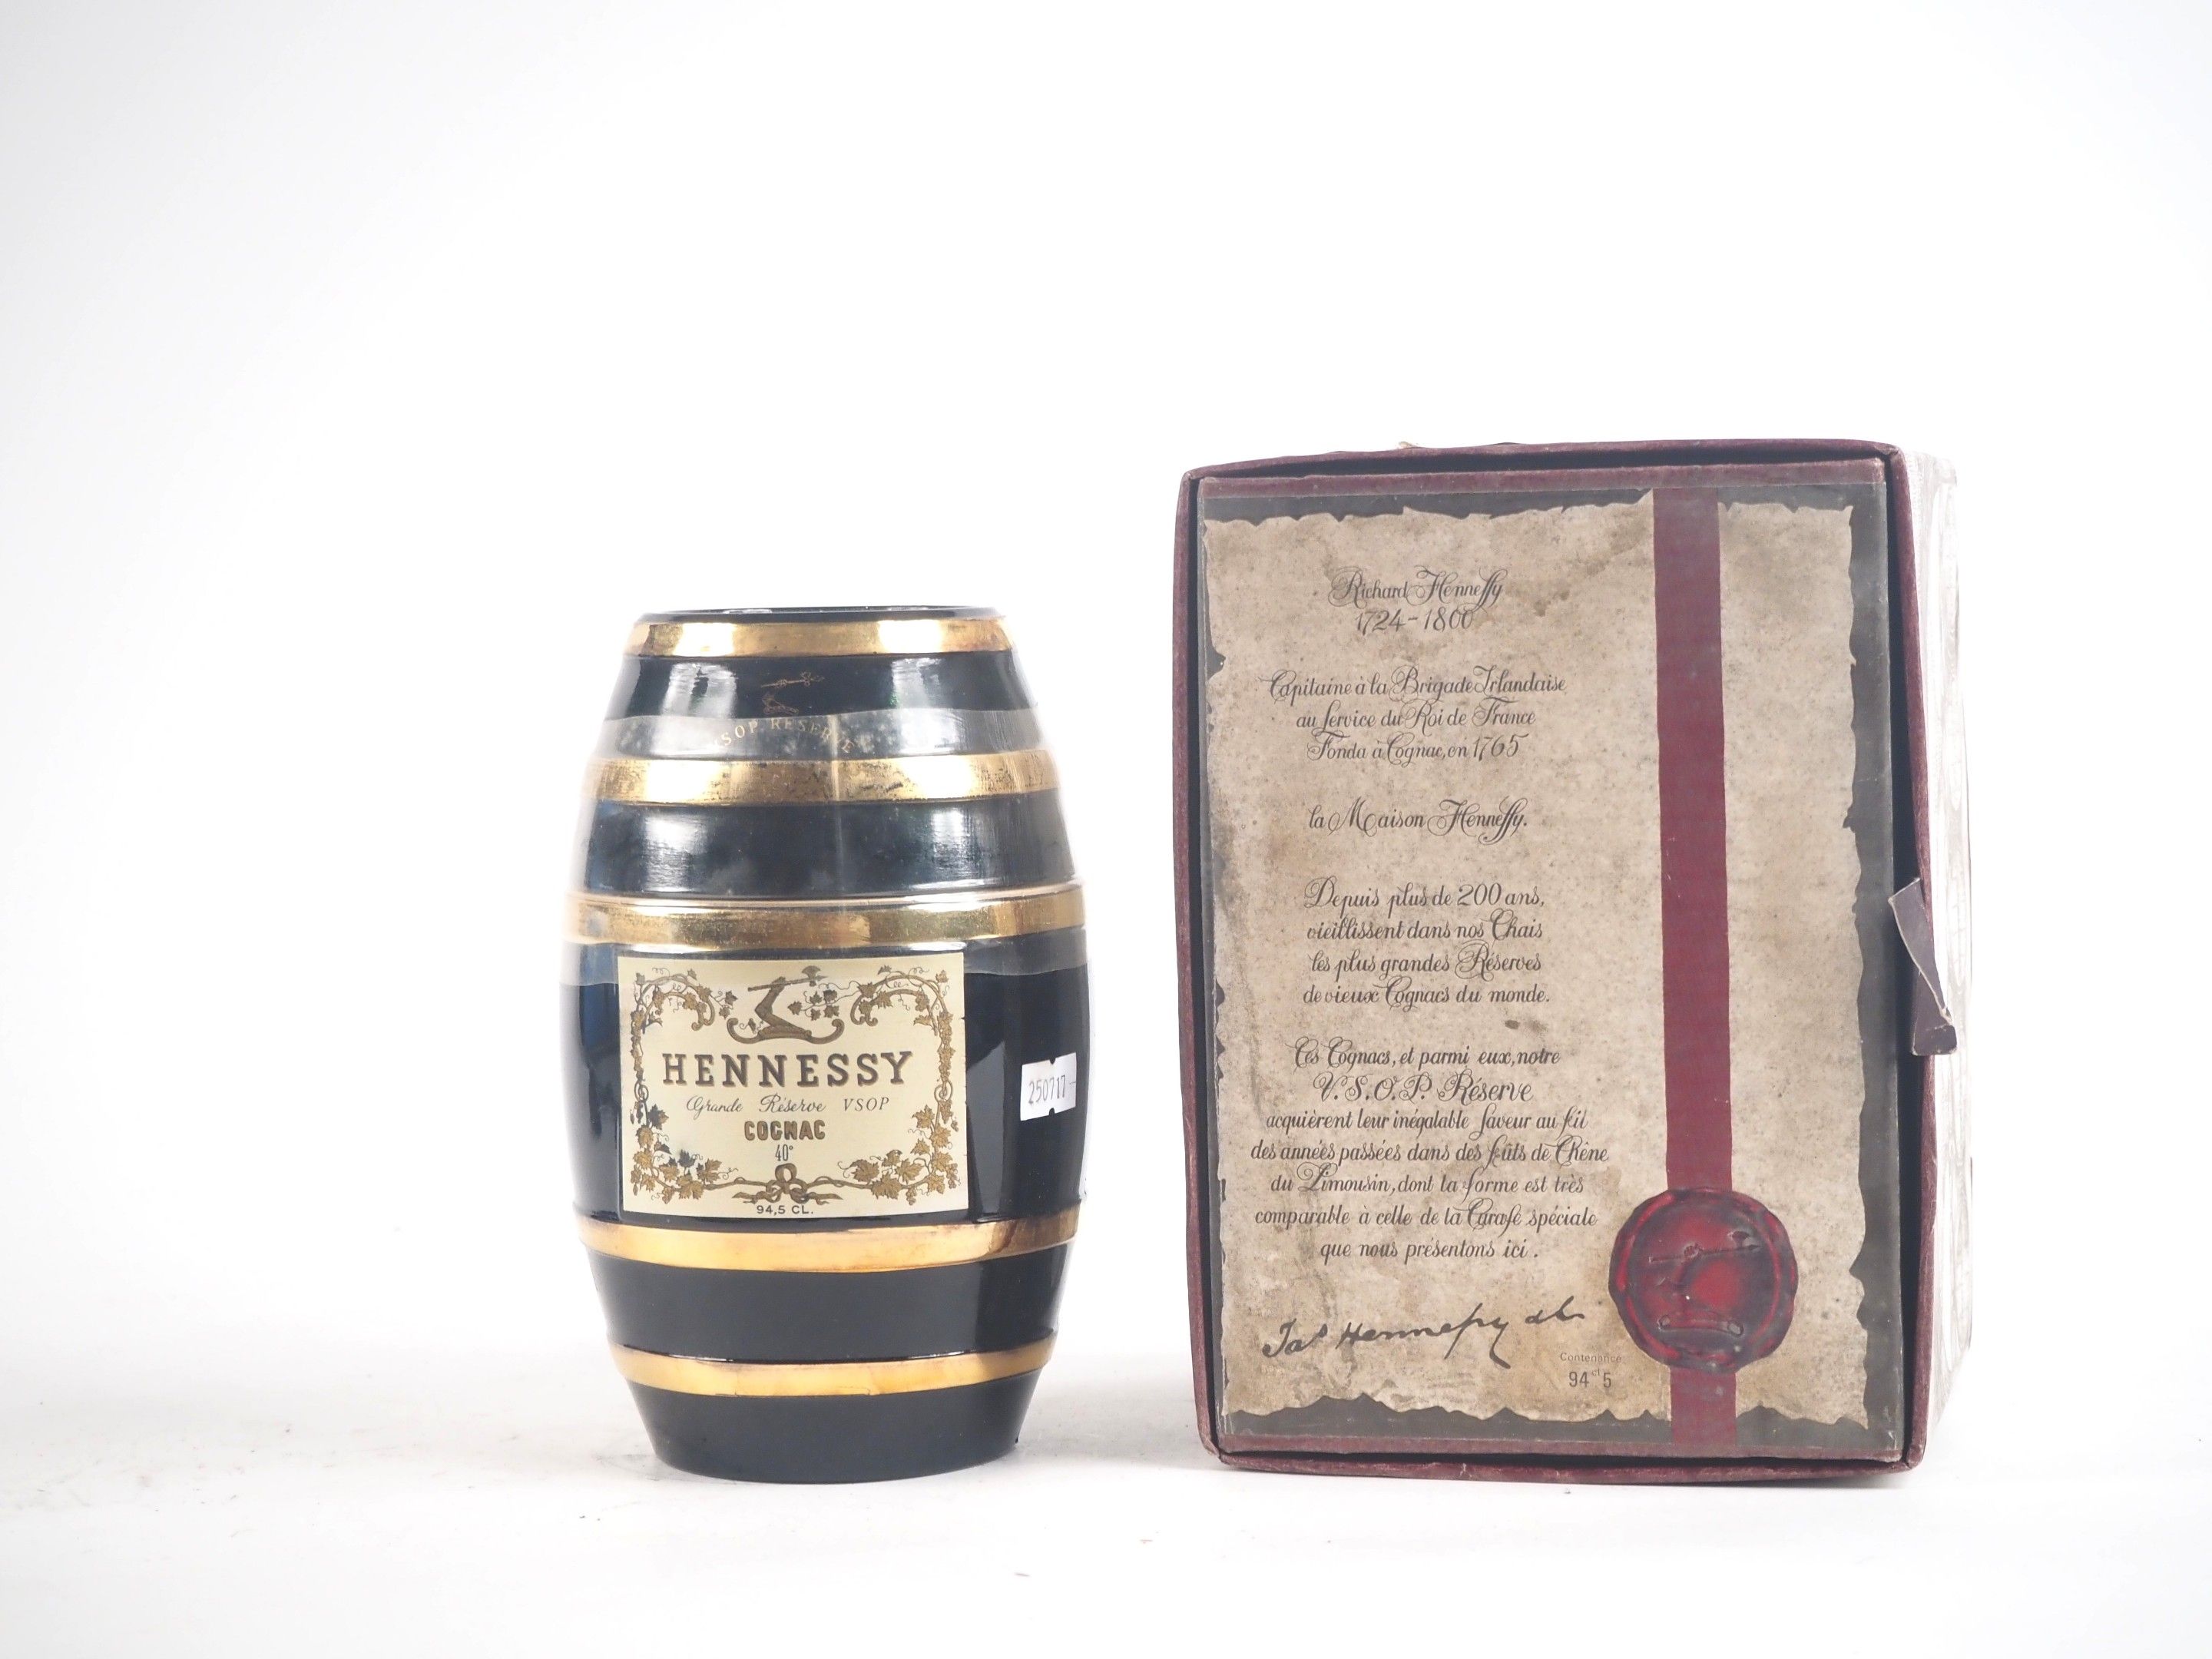 V.S.O.P. RÉSERVE
HENNESSY
Grande Réserve VSOP
COGNAC
40°
94,5 CL.
250717
Richard Hennessy
1724-1800
Capitaine à la Brigade Irlandaise
au Service du Roi de France
Fonda à Cognac, en 1765
la Maison Hennessy.
Depuis plus de 200 ans,
vieillissent dans nos Chais
les plus grandes Réserves
de vieux Cognacs du monde.
Ces Cognacs, et parmi eux, notre
V.S.O.P. Réserve
acquièrent leur inégalable Saveur au fil
des années passées dans des fûts de Chêne
du Limousin, dont la forme est très
comparable à celle de la Carafe spéciale
que nous présentons ici.
Jas Hennessy & Co
Contenance
94 cl 5